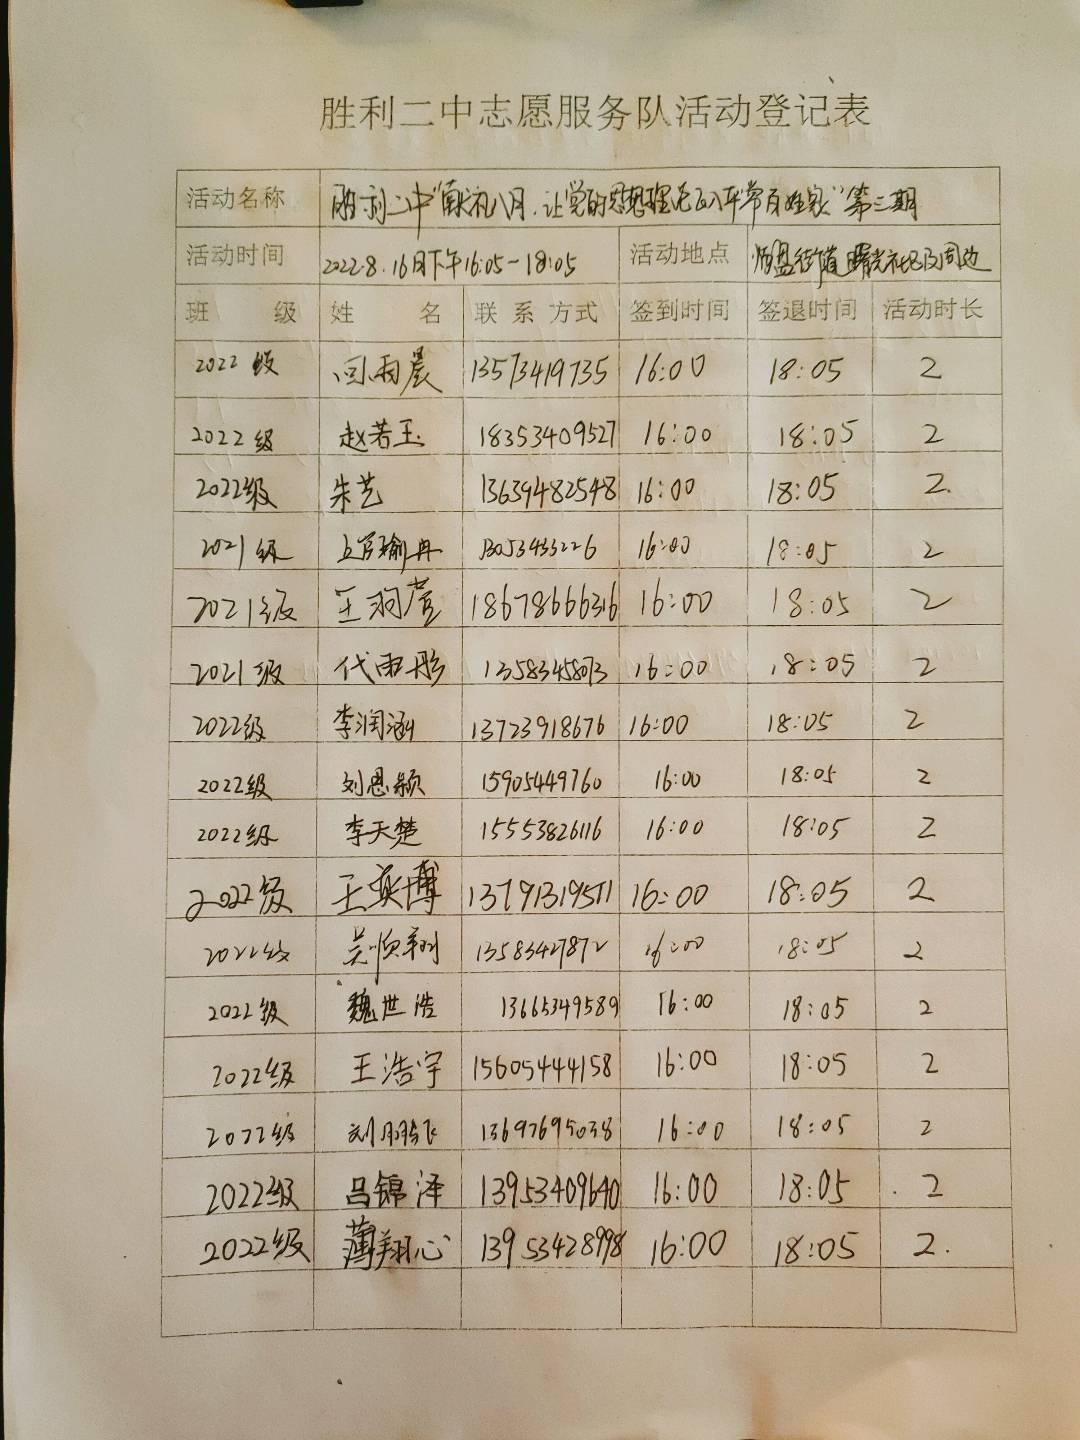 胜利二中志愿服务队活动登记表
活动名称 胜利二中"献礼八月,让党的思想理论飞入平常百姓家"第三期
活动时间 2022.8.16日下午16:05-18:05 活动地点 街道曙光社区及周边
班 级 姓 名 联系方式 签到时间 签退时间 活动时长
2022级 闫雨晨 13573419735 16:00 18:05 2
2022级 赵若玉 18353409527 16:00 18:05 2
2022级 朱艺 13639482548 16:00 18:05 2.
2021级 上官瑜冉 13053433226 16:00 18:05 2
2021级 王羽萱 18678666316 16:00 18:05 2
2021级 代雨彤 13583458073 16:00 18:05 2
2022级 李润涵 13723918676 16:00 18:05 2
2022级 刘恩颖 15905449760 16:00 18:05 2
2022级 李天楚 15553826116 16:00 18:05 2
2022级 王奕博 13791319571 16:00 18:05 2
2022级 吴顺翔 13583427872 16:00 18:05 2
2022级 魏世浩 13665349589 16:00 18:05 2
2022级 王浩宇 15605444158 16:00 18:05 2
2022级 刘鹏飞 13697695038 16:00 18:05 2
2022级 吕锦泽 13953409640 16:00 18:05 2
2022级 薄翔心 13953428998 16:00 18:05 2.